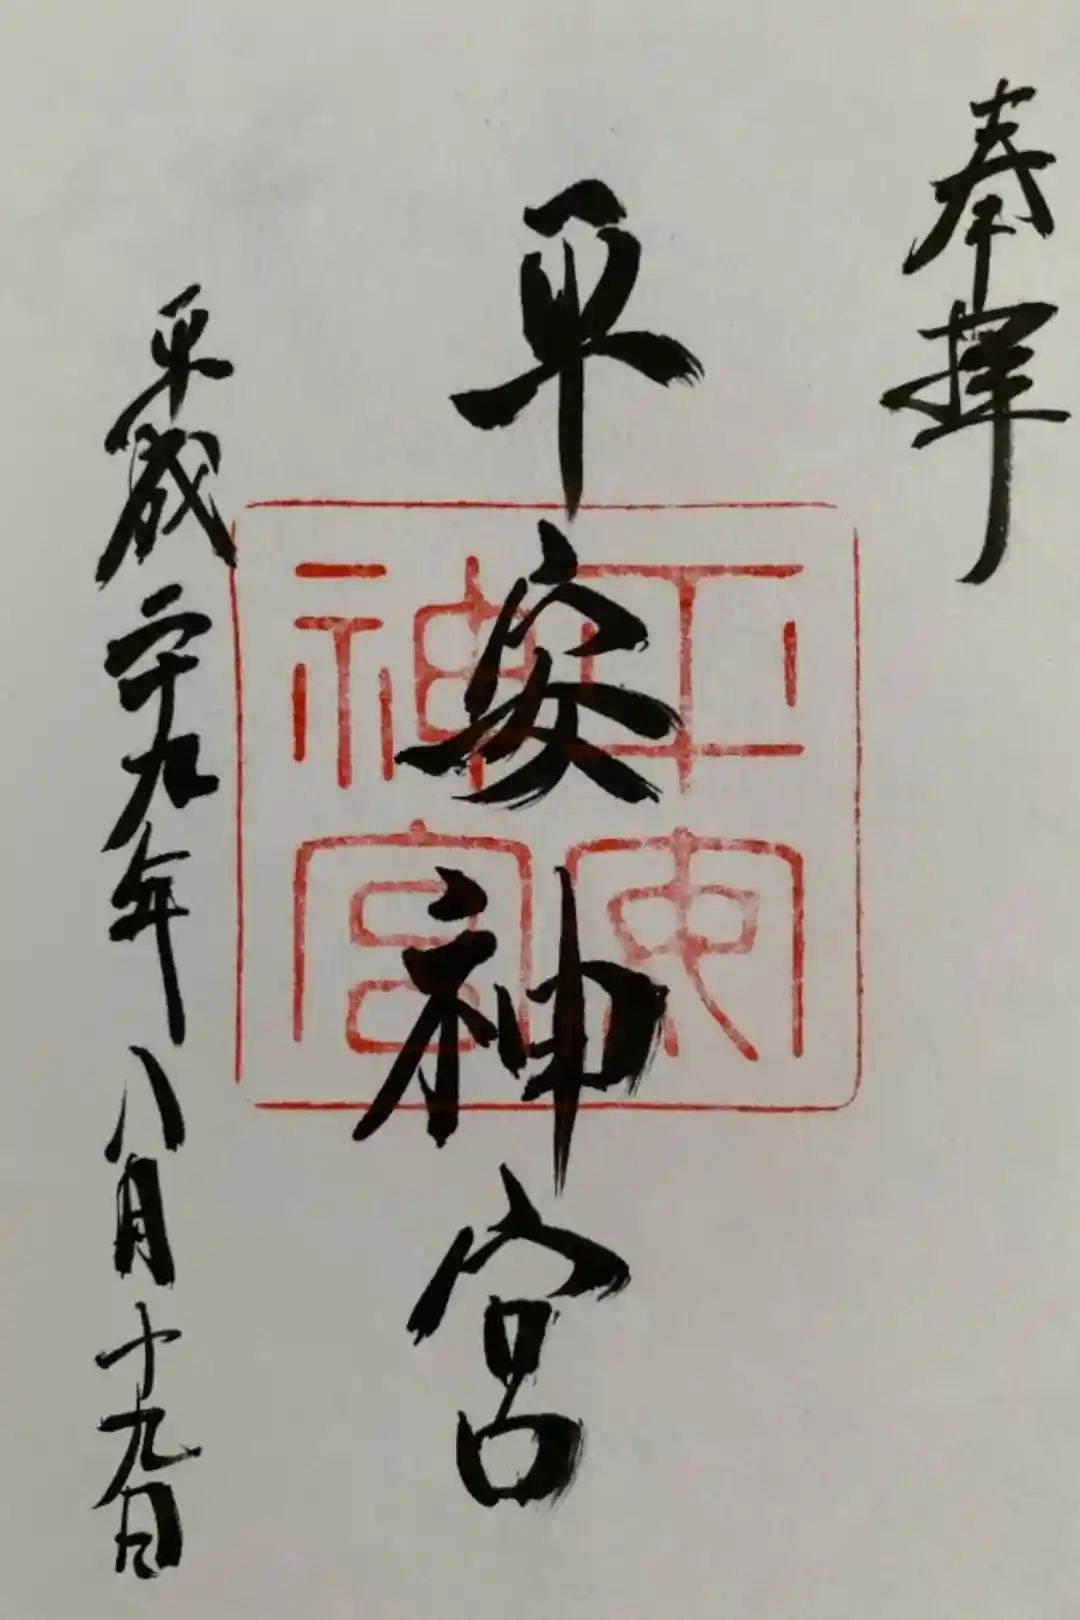 奉拝
平安神宮
平安神宮
平成二十九年八月十九日